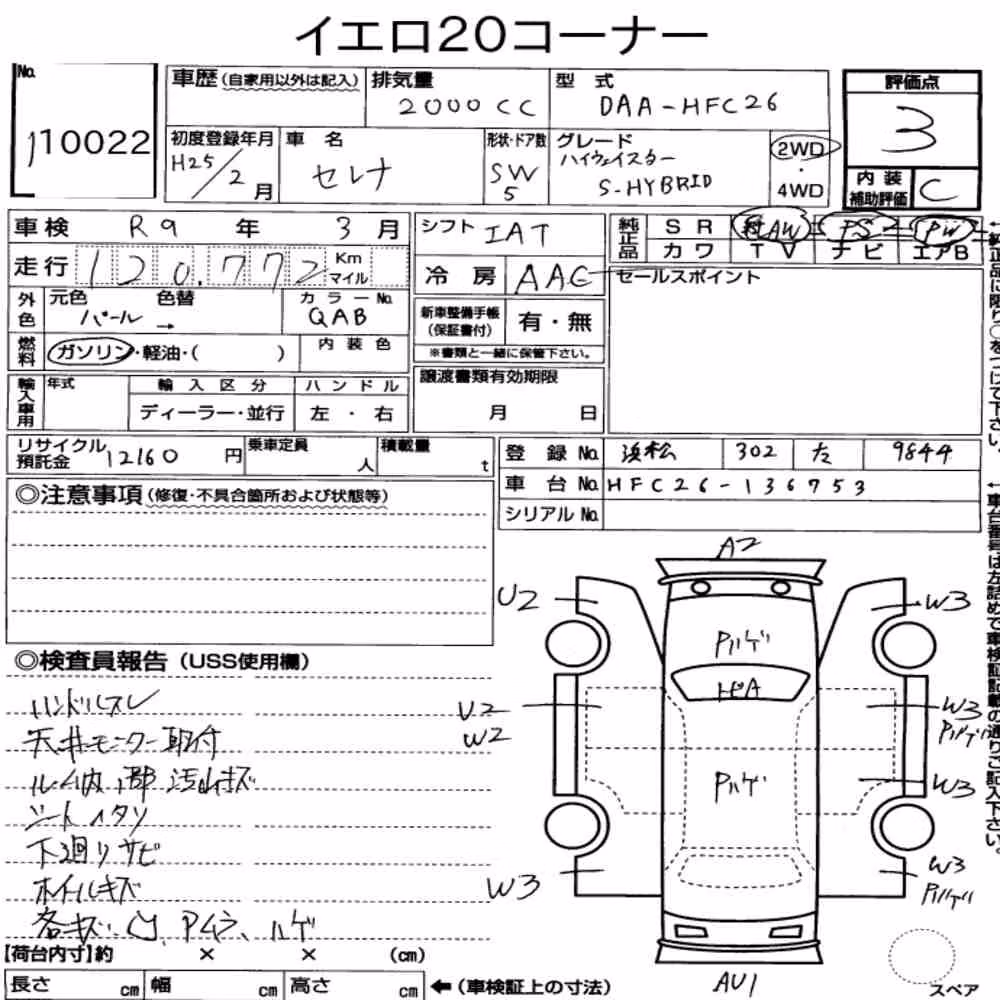 イエロ20コーナー
No.
110022
車歴(自家用以外は記入)
排気量
2000CC
型式
DAA-HFC26
評価点
3
初度登録年月
H25/2月
車名
セレナ
形状・ドア数
SW
5
グレード
ハイウェイスター
S-HYBRID
2WD
・
4WD
内装
補助評価
C
車検 R9 年 3 月
走行 120,772 Km マイル
シフト IAT
冷房 AAC
純正品 SR AW PS PW
カワ TV ナビ エアB
セールスポイント
外色 元色 パール → 色替
カラーNo. QAB
新車整備手帳
(保証書付)
有・無
※書類と一緒に保管下さい。
燃料 ガソリン・軽油・( )
内装色
譲渡書類有効期限
月 日
輸入車用 年式
輸入区分
ディーラー・並行
ハンドル
左・右
リサイクル
預託金 12160 円
乗車定員 人
積載量 t
登録No. 浜松 302 た 9844
車台No. HFC26-136753
シリアルNo.
←純正品に限り○をつけて下さい。
←車台番号は左詰めで車検証記載の通りご記入下さい。
◎注意事項(修復・不具合箇所および状態等)
◎検査員報告(USS使用欄)
ハンドルスレ
天井モニター取付
ルーム内 部 汚れキズ
シートイタン
下廻りサビ
ホイルキズ
各キズ、凹、アムラ、ハゲ
A2
U2
W3
Pハゲ
トビA
U2
W2
W3
Pハゲ
Pハゲ
W3
W3
W3
Pハゲ
AU1
スペア
【荷台内寸】約 × × (cm)
長さ cm 幅 cm 高さ cm ←(車検証上の寸法)